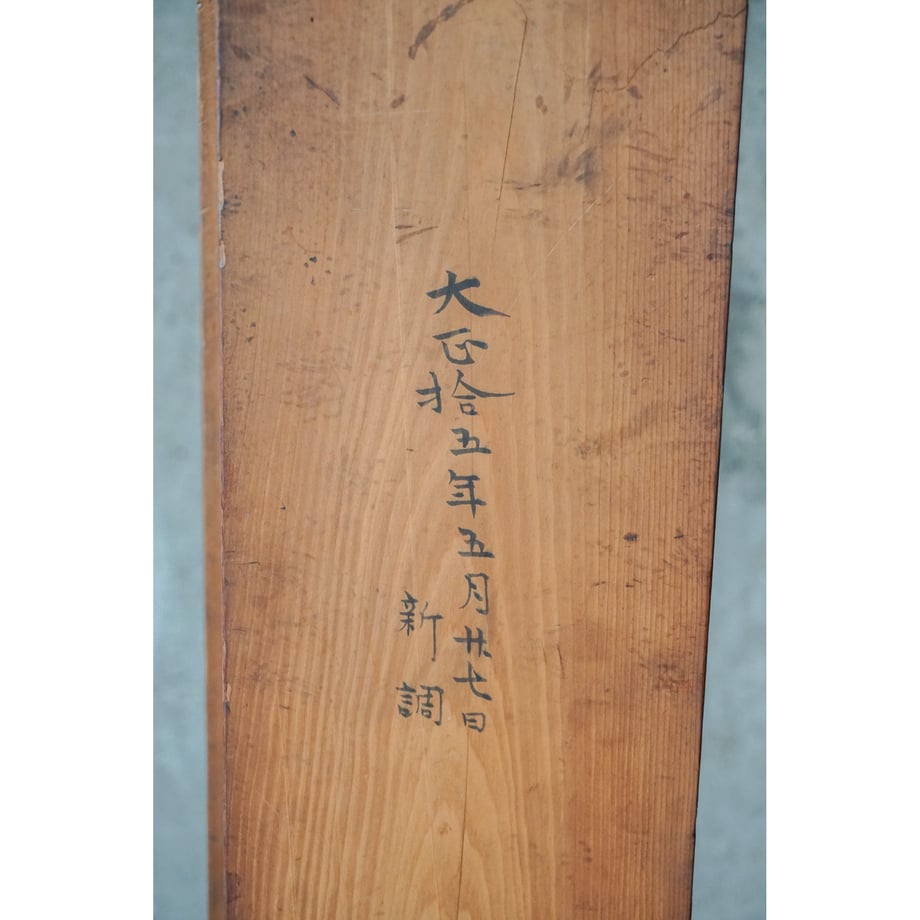 大正拾五年五月廿七日
新調